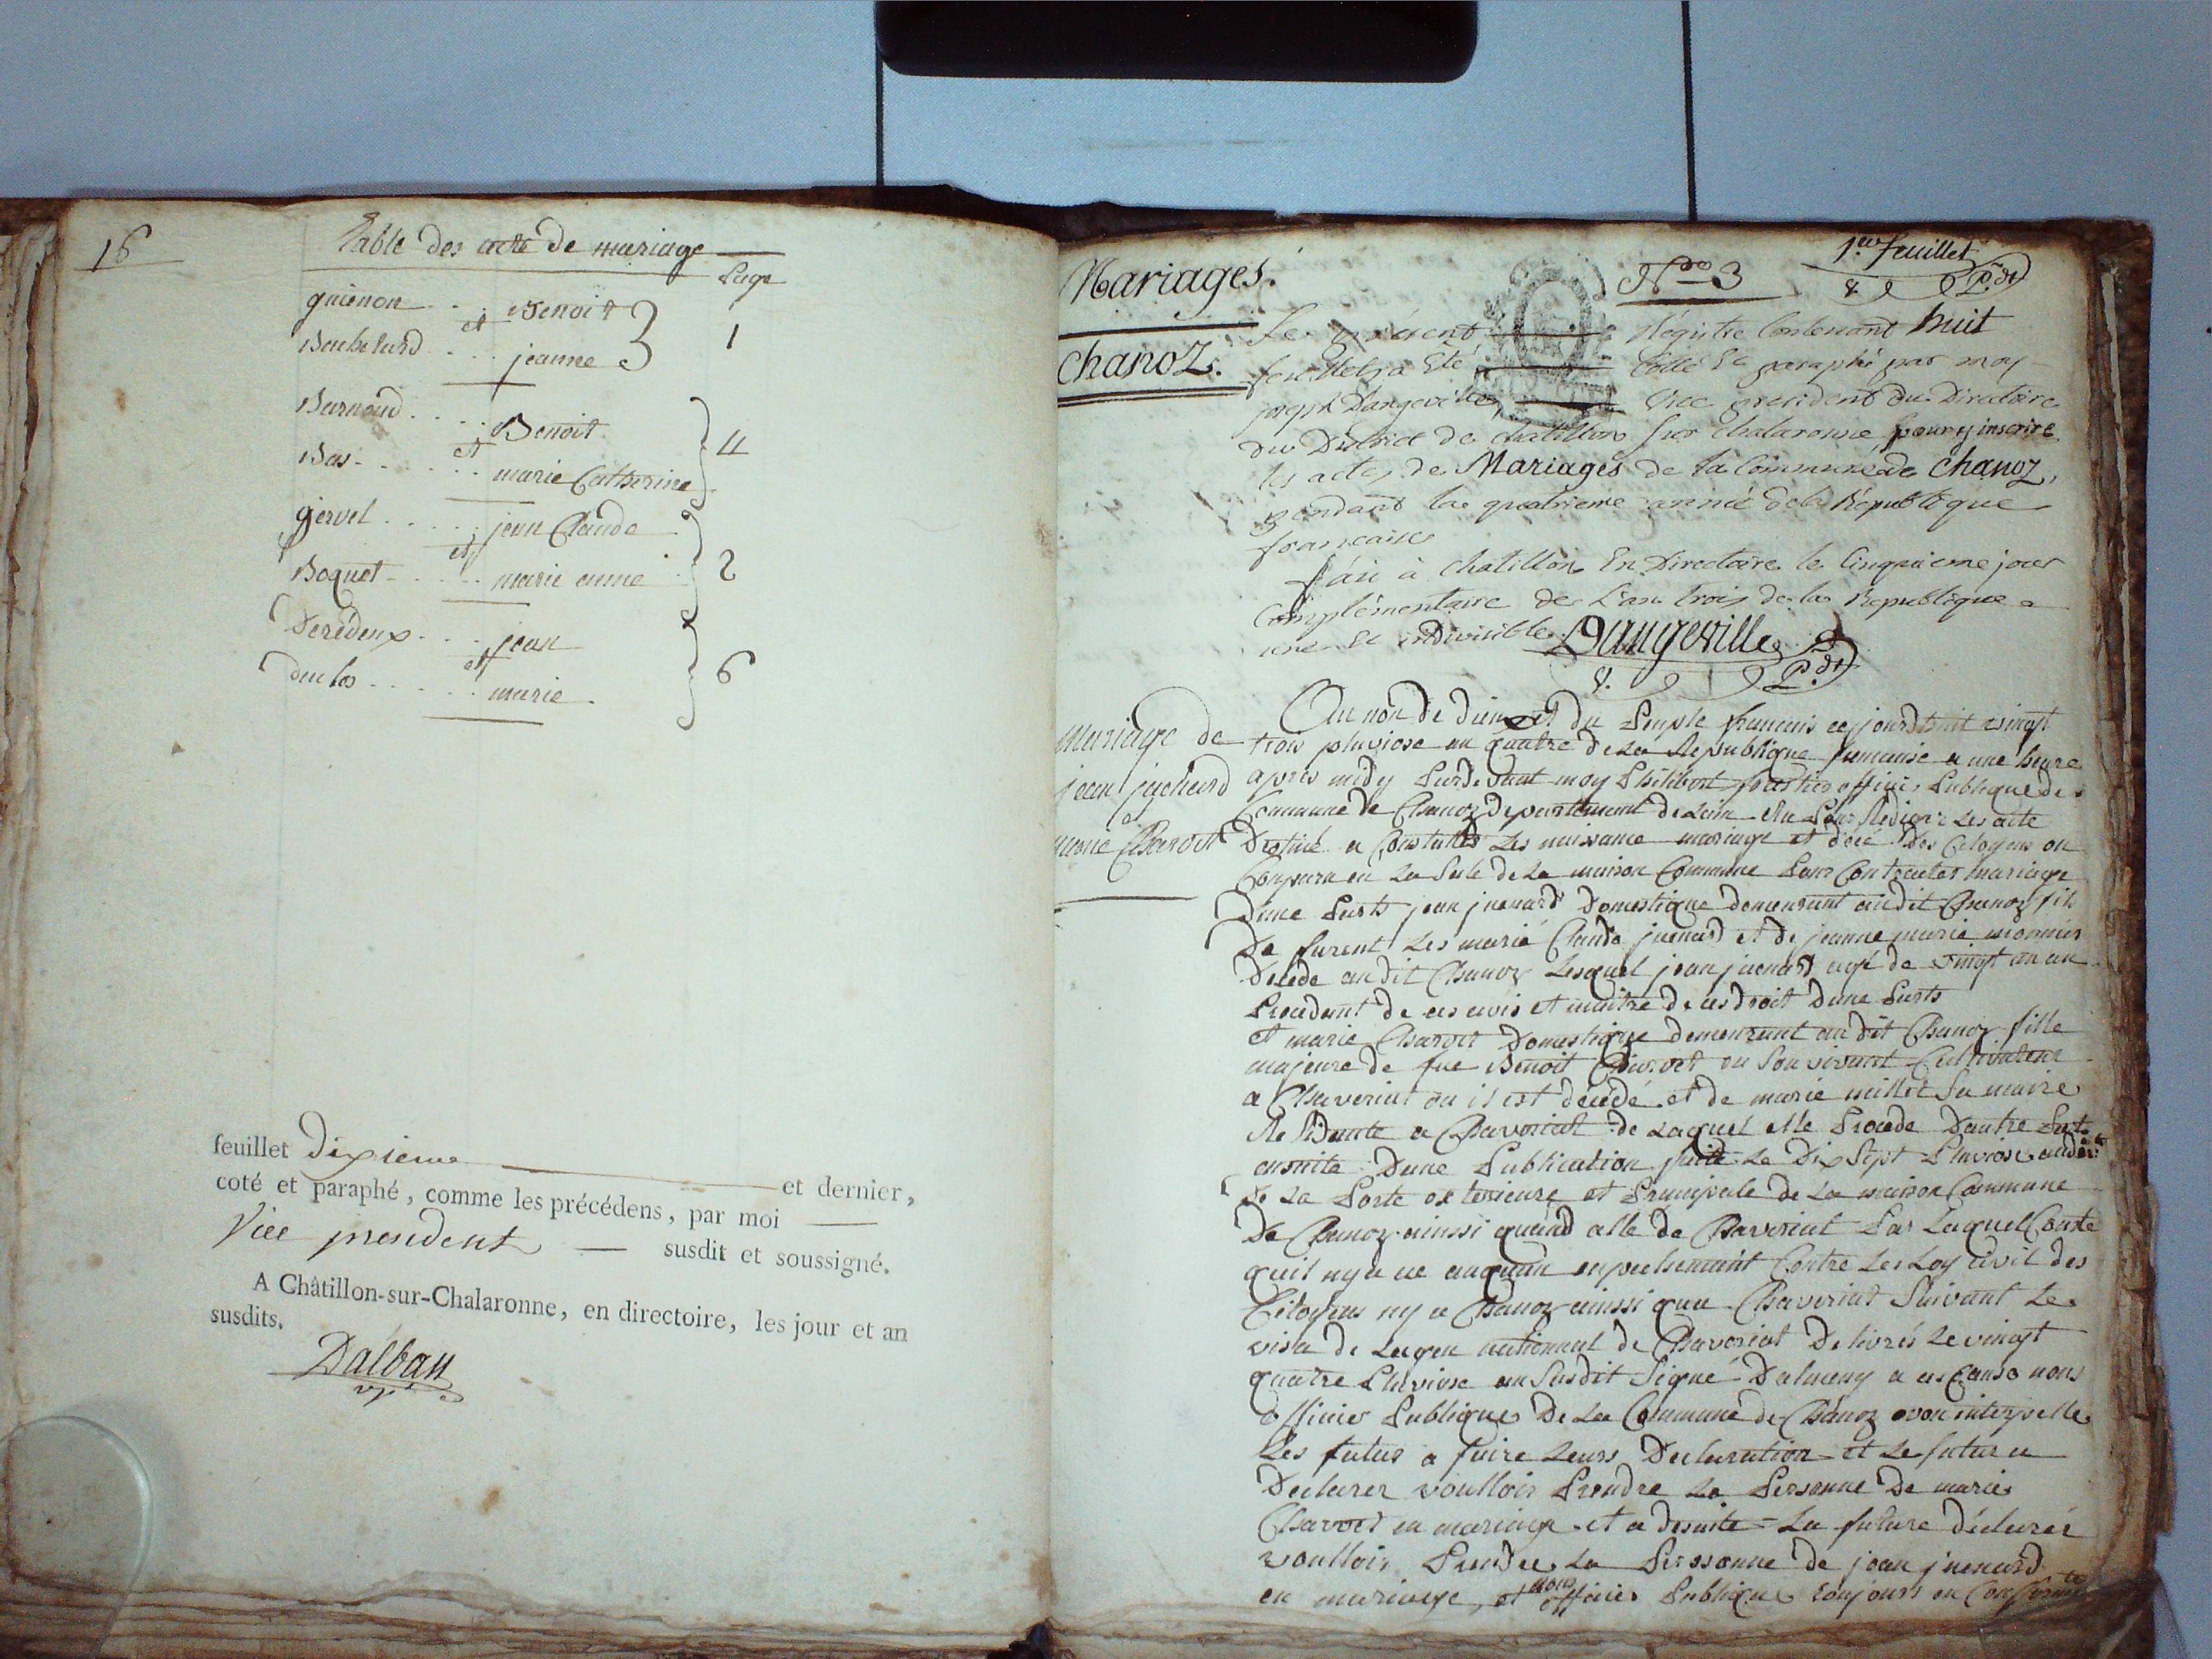 16
Table des acte de mariage
Page
guienon . . Benoit
et
Bachelard . . . jeanne
1
Barnoud . . . Benoit
et
Bas . . . . . . marie Catherine
4
gervel . . . . . jean Claude
et
Boquet . . . . . marie anne
2
Deredeux . . . . jean
et
duclos . . . . . . marie
6
feuillet dixieme et dernier,
coté et paraphé, comme les précédens, par moi
Vice president susdit et soussigné.
A Châtillon-sur-Chalaronne, en directoire, les jour et an
susdits.
Dalban
vpt
Mariages.
Chanoz.
No 3
1er feuillet
Le présent Régistre Contenant huit
feuillets a Eté Cotté Et paraphé par moy
joseph Dangeville, Vice president du Directoire
du District de chatillon sur chalaronne pour y inscrire
les actes de Mariages de la Commune de Chanoz,
pendant la quatrieme année de la République
francaise
fait à chatillon En Directoire le Cinquieme jour
Complémentaire de L'an trois de la Republique
une Et indivisible. Dangeville
V. Pdt
mariage de
jean juenard
et
marie Charvet
Au nom de dieu et du Peuple francais cejourdhuit vingt
trois pluviose an quatre de La Republique francaise a une heure
apres midy Pardevant moy Philibert officier Publique de
Commune de Chanoz departement de Lain Elu Pour Rediger Les acte
Destiné a Constatter Les naissance mariage et décé Des Citoyens on
Comparu en La Sale de La maison Commune Pour Contracter mariage
Dune Parts jean juenard Domestique demeurant audit Chanoz fils
De furent Les marié Claude juenard et de jeanne marie monnier
Décédé audit Chanoz Lesquel jean juenard agé de vingt un an
Procedant de ces avis et maitre de ces droit Dune Parts
et marie Charvet Domestique demeurant au dit Chanoz fille
majeure de feu Benoit Charvet en Son vivant Cultivateur
a Chaveriat ou il est décédé et de marie millet Sa maire
Residante a Chaveriat de Laquel elle Procede Dautre Part
ensuite Dune Publication faite Le Dix Sept Pluviose
De La Porte exterieure et Principale de La maison Commune
De Chanoz ainssi quand celle de Chaveriat Par Laquel Conste
quil ny a ue auquun enpechement Contre Les Loy Civil des
Citoyens ny a Chanoz ainssi qua Chaveriat Suivant Le
visa de Lagen nationnal de Chaveriat Delivrés Le vingt
quatre Pluviose an Susdit Signé Dalmeny a ces Cause nous
officier Publique De La Commune de Chanoz avon interpelle
Les futur a faire Leurs Declaration et Le futur a
Declarer voulloir Prendre La Personne De marie
Charvet en mariage et a desuite La future déclarer
voulloir Prendre La Perssonne de jean juenard
en mariage, et nous officier Publique toujours en Conformité